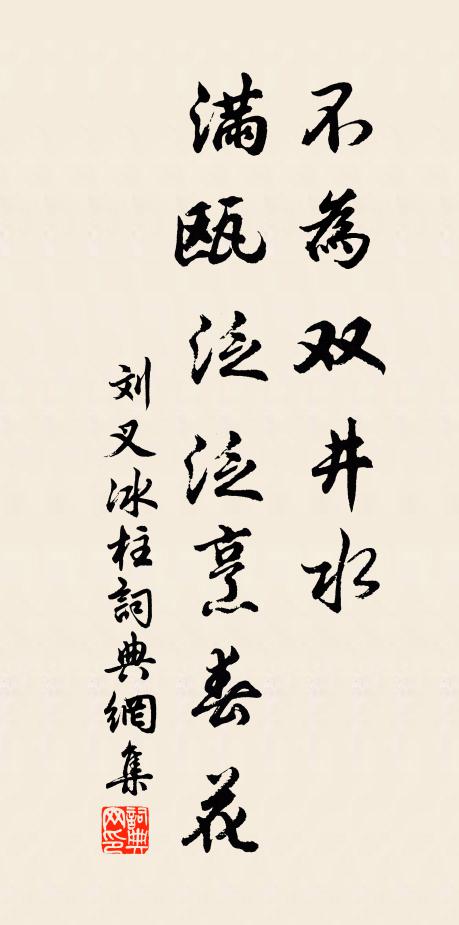 不為双井水
满瓯泛泛烹春花
刘叉冰柱詞典網集
詞典网印